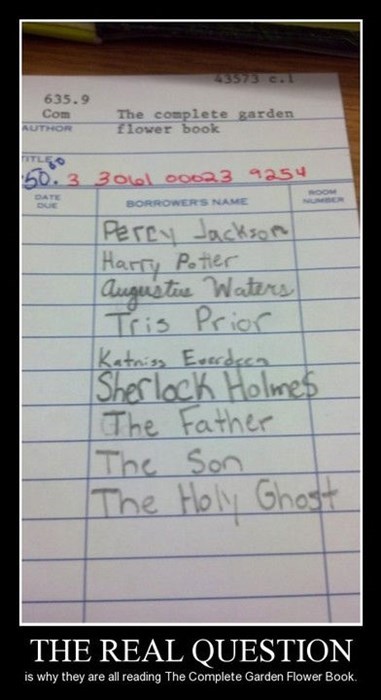 43573 c.1
635.9
Com The complete garden
AUTHOR flower book
TITLE
50.3 3061 00023 9254
DATE DUE BORROWER'S NAME ROOM NUMBER
Percy Jackson
Harry Potter
Augustus Waters
Tris Prior
Katniss Everdeen
Sherlock Holmes
The Father
The Son
The Holy Ghost
THE REAL QUESTION
is why they are all reading The Complete Garden Flower Book.